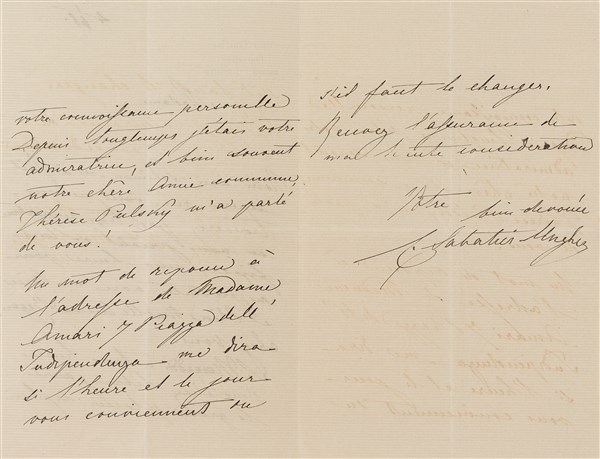 votre connoissance personelle
Depuis longtemps j'etais votre
admiratrice, et bien souvent
notre chère Amie commune,
Thérèse Pulszky m'a parlé
de vous!
Un mot de reponse à
l'adresse de Madame
Amari 7 Piazza dell'
Indipendenza me dira
si l'heure et le jour
vous conviennent ou
s'il faut le changer.
Recevez l'assurance de
ma haute consideration
Votre
bien devouée
C. Sabatier Ungher